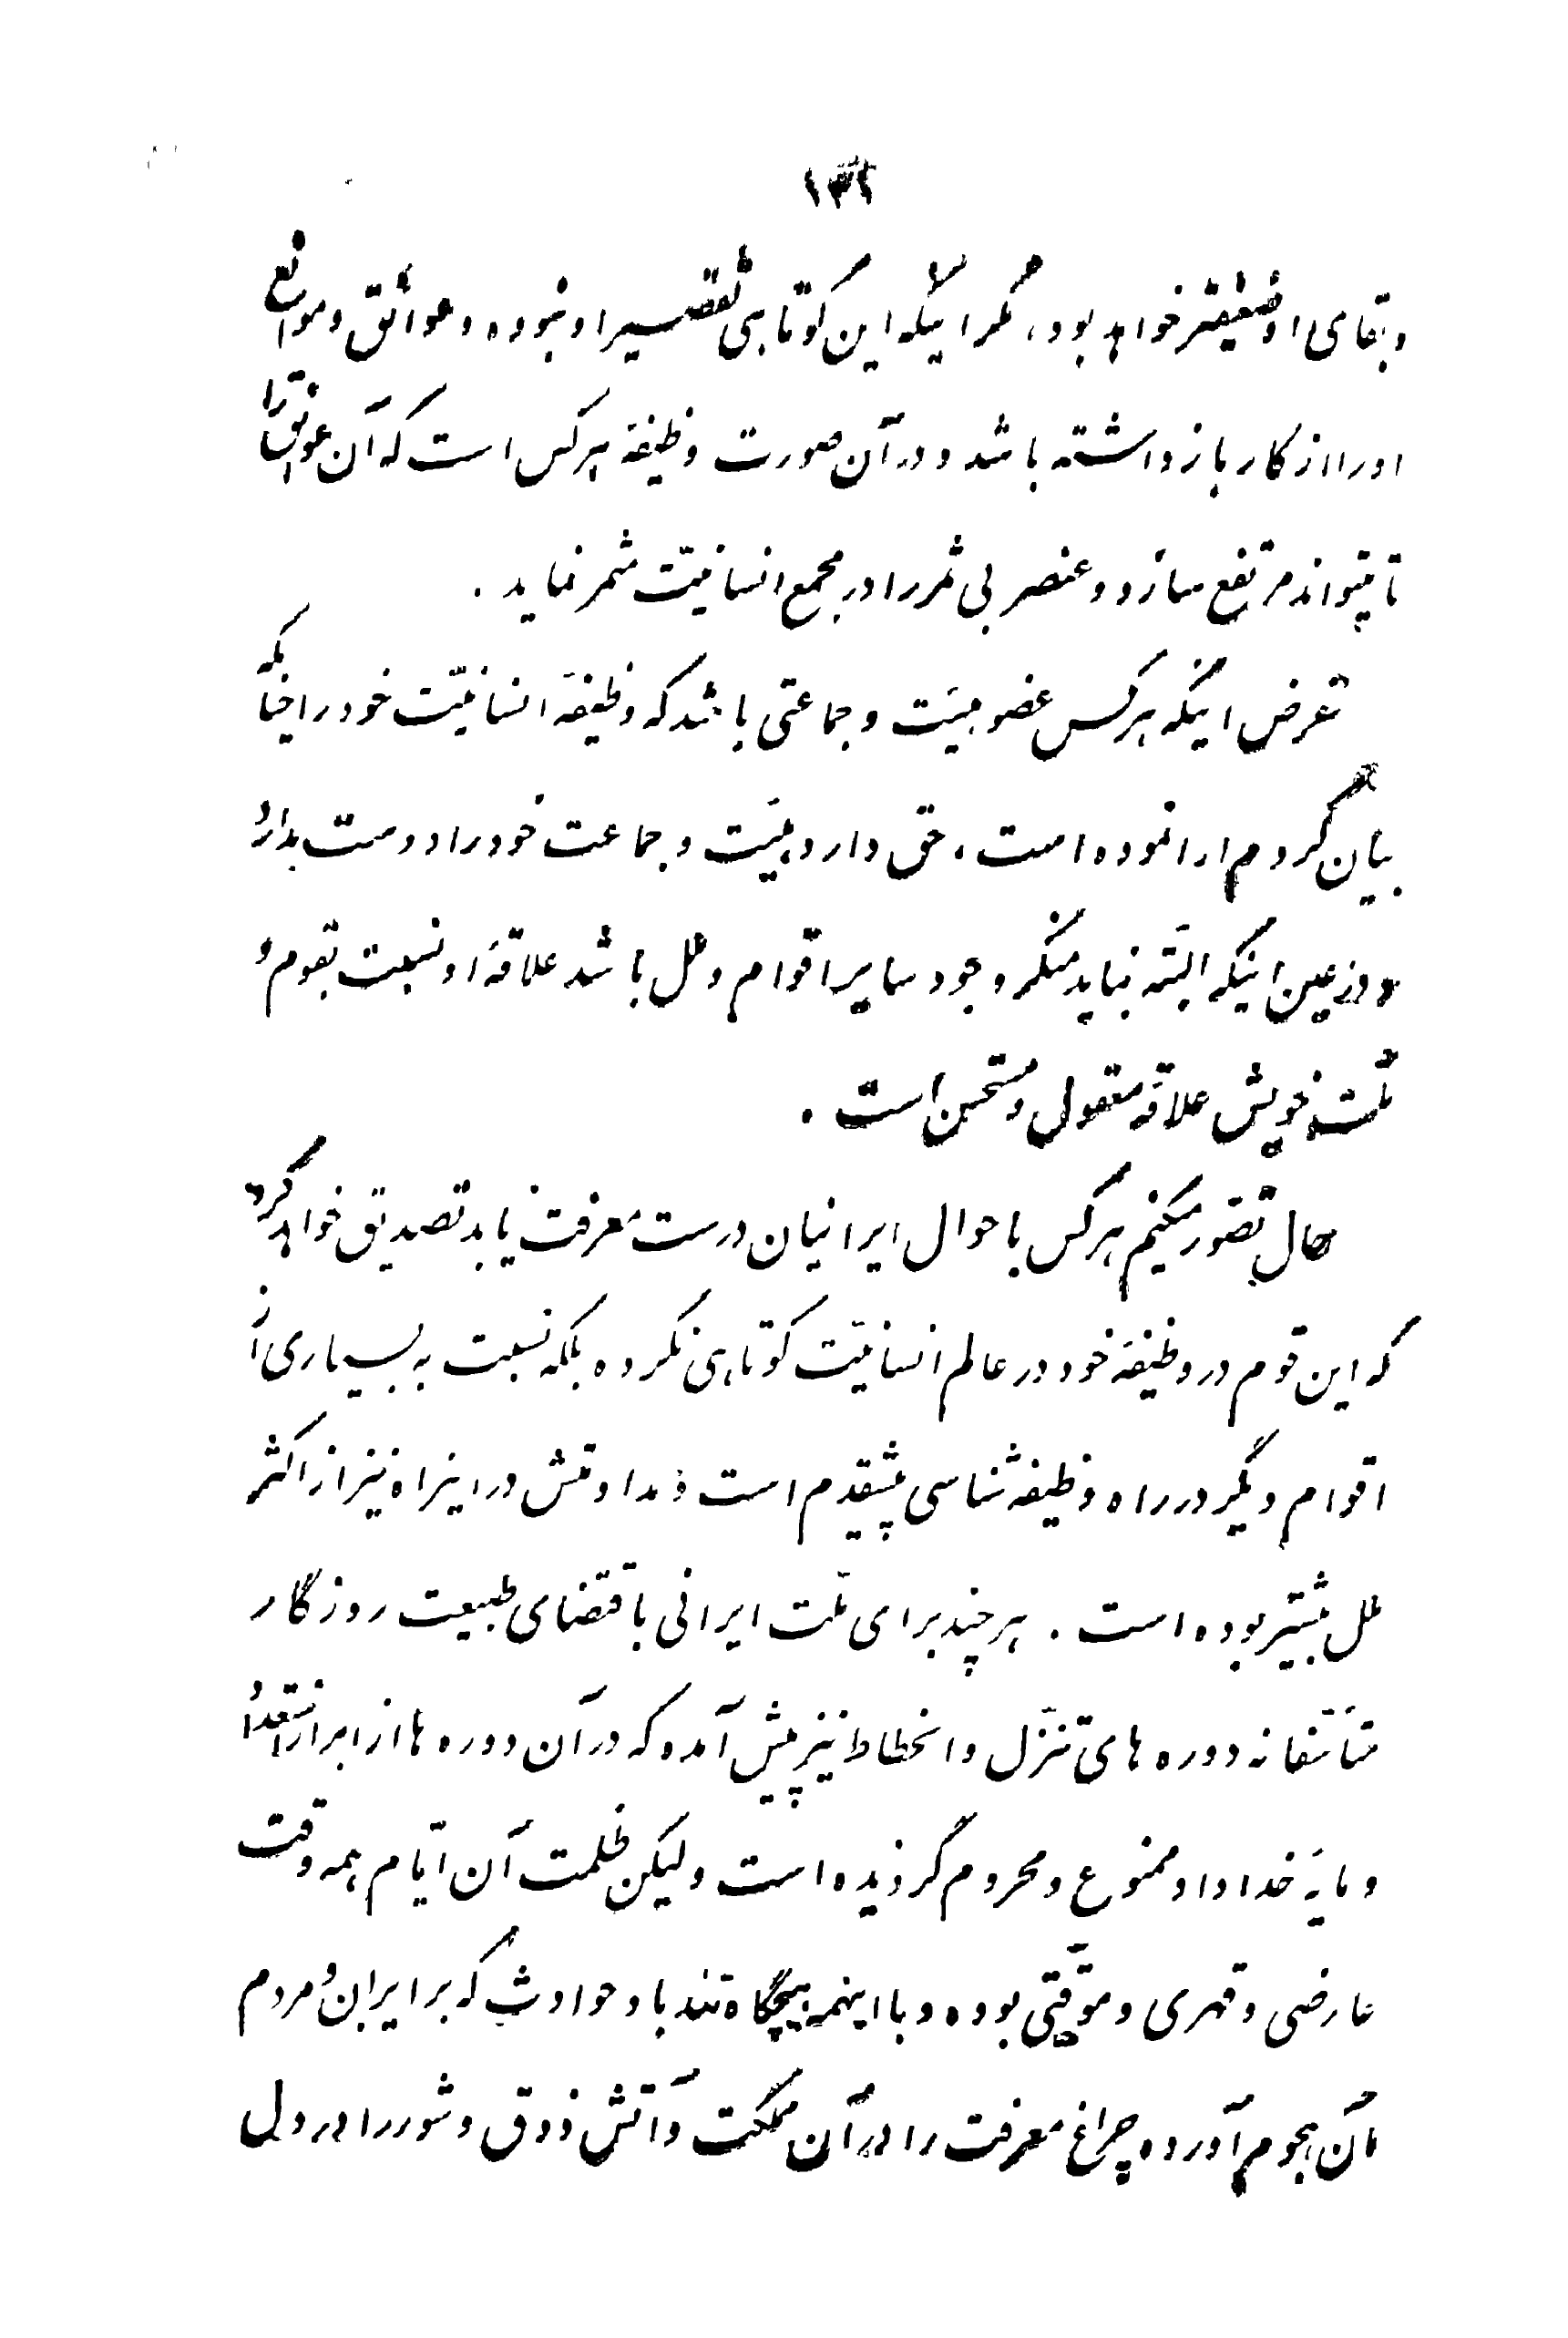 ۱۳۲
و بقای او ضعیفتر خواهد بود، مگر اینکه این کوتاهی تقصیر او نبوده و عوائق و موانع
او را از کار باز داشته باشد و در آن صورت وظیفهٔ هر کس است که آن عوایق را
تا بتواند مرتفع سازد و عنصر بی ثمر را در مجمع انسانیّت مثمر نماید .
غرض اینکه هر کس عضو هیئت و جماعتی باشد که وظیفهٔ انسانیّت خود را چنانکه
بیان کردم ادا نموده است ، حق دارد هیئت و جماعت خود را دوست بدارد
و در عین اینکه البتّه نباید منکر وجود سایر اقوام و ملل باشد علاقهٔ او نسبت بقوم و
ملّت خویش علاقهٔ معقول و مستحسن است .
حال تصوّر میکنم هر کس باحوال ایرانیان درست معرفت یابد تصدیق خواهد کرد
که این قوم در وظیفهٔ خود در عالم انسانیّت کوتاهی نکرده بلکه نسبت به بسیاری از
اقوام دیگر در راه وظیفه شناسی پیشقدم است و مداومتش در اینراه نیز از اکثر
ملل بیشتر بوده است . هر چند برای ملّت ایرانی باقتضای طبیعت روزگار
متأسّفانه دوره های تنزّل و انحطاط نیز پیش آمده که در آن دوره ها از ابراز استعداد
و مایهٔ خداداد ممنوع و محروم گردیده است ولیکن ظلمت آن ایّام همه وقت
عارضی و قهری و موقّتی بوده و با اینهمه هیچگاه تند باد حوادث که بر ایران و مردم
آن هجوم آورده چراغ معرفت را در آن مملکت و آتش ذوق و شور را در دل